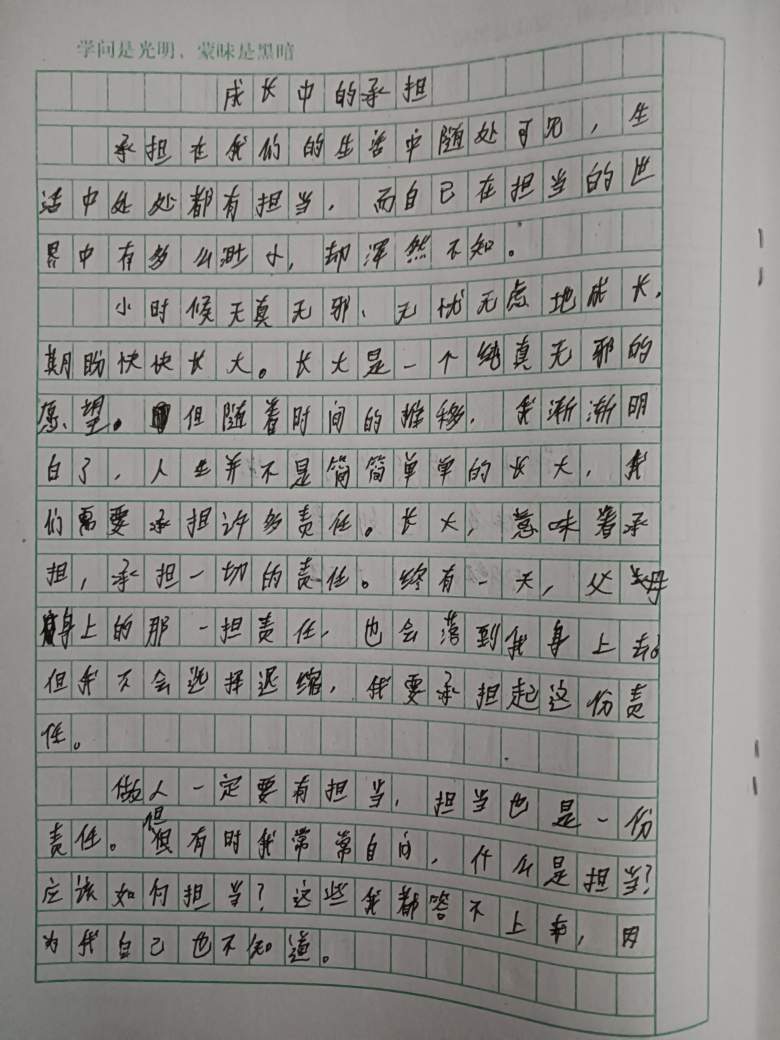 学问是光明，蒙昧是黑暗
成长中的承担
承担在我们的生活中随处可见，生
活中处处都有担当，而自己在担当的世
界中有多么渺小，却浑然不知。
小时候天真无邪、无忧无虑地成长，
期盼快快长大。长大是一个纯真无邪的
愿望。但随着时间的推移，我渐渐明
白了，人生并不是简简单单的长大，我
们需要承担许多责任。长大，意味着承
担，承担一切的责任。终有一天，父母
身上的那一担责任，也会落到我身上去。
但我不会选择退缩，我要承担起这份责
任。
做人一定要有担当，担当也是一份
责任。但有时我常常自问，什么是担当？
应该如何担当？这些我都答不上来，因
为我自己也不知道。